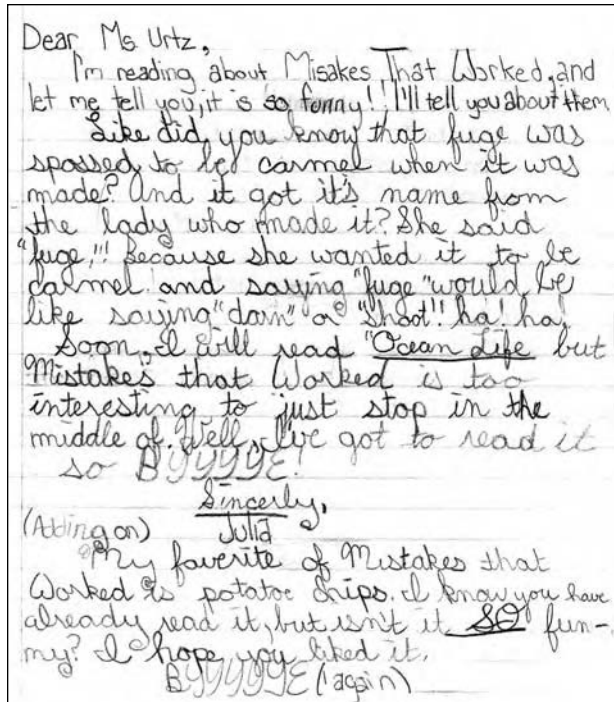 Dear Ms. Urtz,
I'm reading about Misakes That Worked, and
let me tell you, it is so funny!! I'll tell you about them
Like did you know that fuge was
spossed to be carmel when it was
made? And it got it's name from
the lady who made it? She said
"fuge,"!! because she wanted it to be
calmel and saying "fuge" would be
like saying "darn" or "shoot"! ha! ha!
Soon, I will read "Ocean Life but
Mistakes that Worked is too
interesting to just stop in the
middle of. Well, I've got to read it
so BYYYYYE!
Sincerly,
Julia
(Adding on)
My favorite of Mistakes that
Worked is potatoe chips. I know you have
already read it, but isn't it SO fun-
ny? I hope you liked it.
BYYYYYE (again)